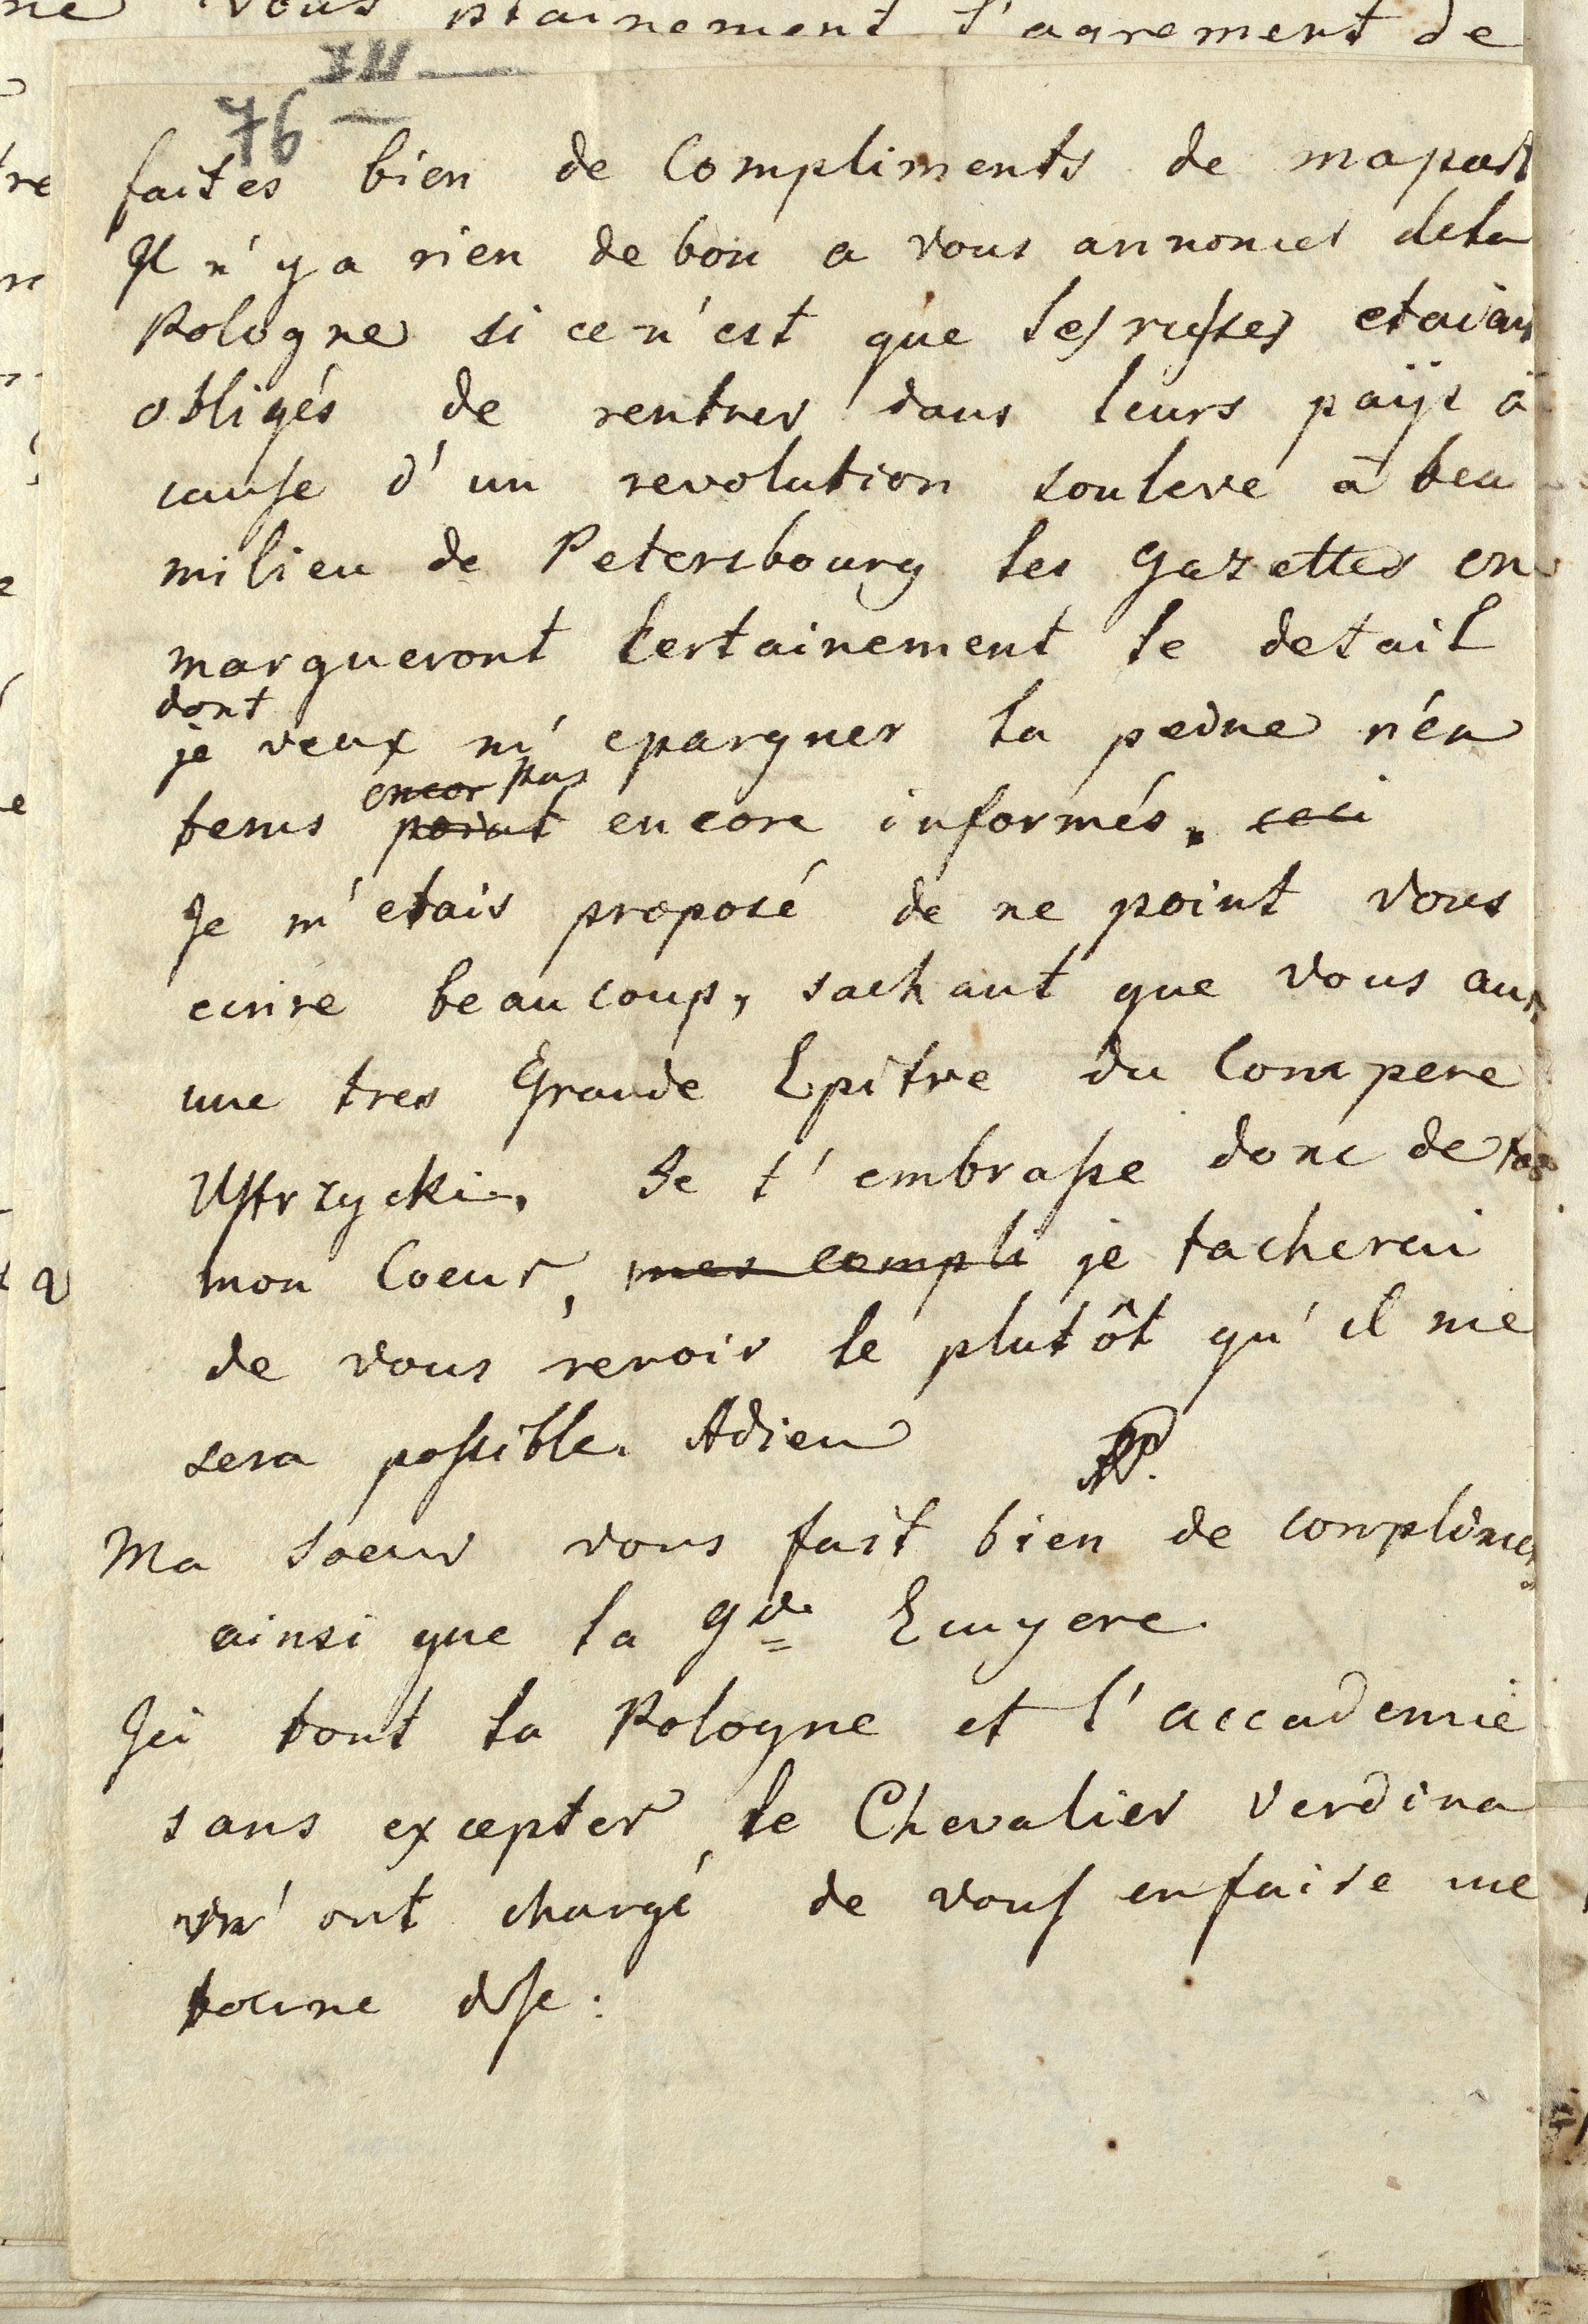 vous plainement l'agrement de
III
76
faites bien de Compliments de mapart
Il n'y a rien de bon a vous annoncer dela
Pologne si ce n'est que les russes etaian
obligés de rentrer dans leurs païjs à
cause d'un revolution souleve a beu
milieu de Petersbourg les gazettes en
marqueront Certainement le detail
dont
je veux m'epargner la peine n'en
encor pas
tems point encore informés. ceci
Je m'etais proposé de ne point vous
ecrire beaucoup, sachant que vous aur
une tres Grande Epitre du Compere
Ustrzycki. Je t'embrasse donc de
mon Coeur, mes compli je tacherai
de vous revoir le plutôt qu'il me
sera possible. Adieu
AP.
Ma Soeur vous fait bien de complimen
ainsi que la gde Ecuyere.
Ici tout la Pologne et l'accademie
sans excepter le Chevalier Verdina
m'ont chargé de vous enfaire une
bonne dose: